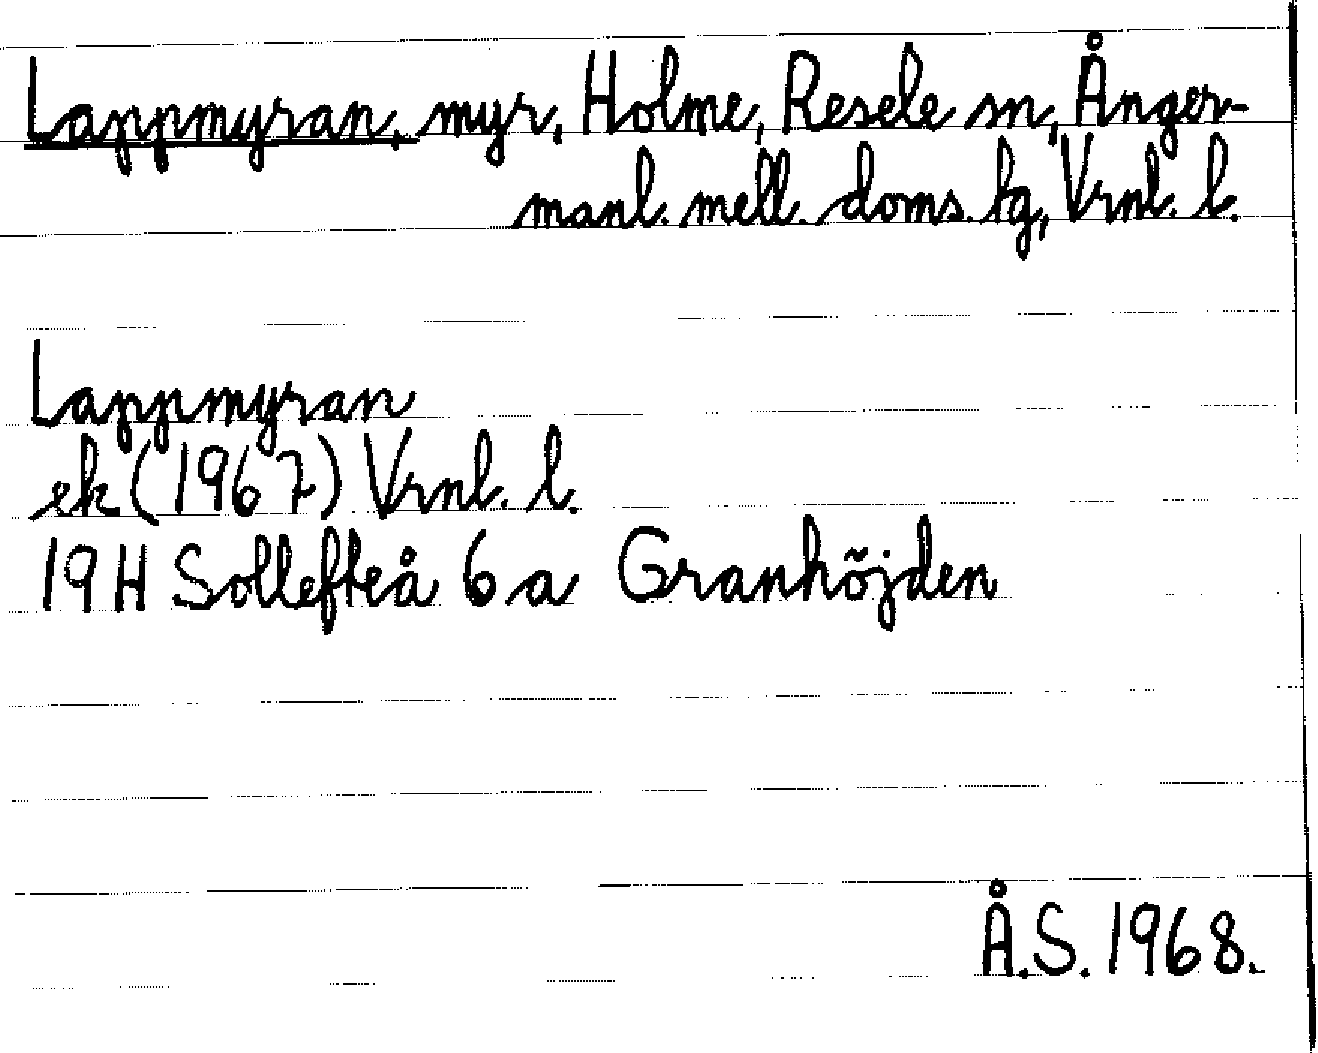 Lappmyran, myr, Holme, Resele sn, Ånger-
manl. mell. doms. tg, Vrnl. l.
Lappmyran
ek (1967) Vrnl. l.
19H Sollefteå 6a Granhöjden
Å.S. 1968.